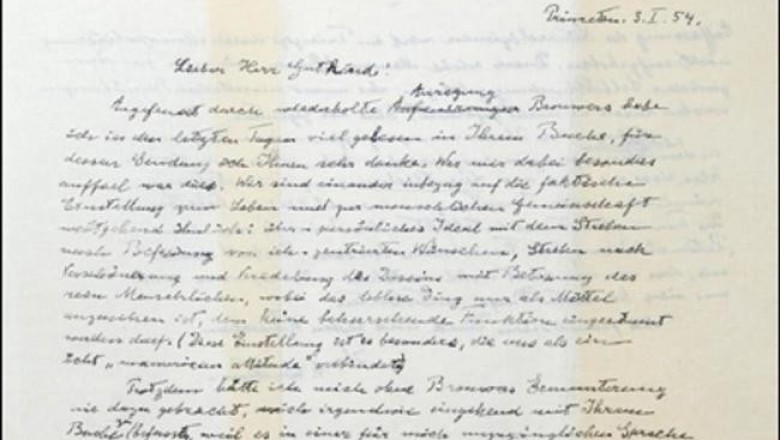 Princeton. 3. I. 54.
Lieber Herr Gutkind!
Anregung
Angefeuert durch wiederholte Brouwers habe
ich in den letzten Tagen viel gelesen in Ihrem Buche, für
dessen Sendung ich Ihnen sehr danke. Was mir dabei besonders
auffiel war dies. Wir sind einander inbezug auf die faktische
Einstellung zum Leben und zur menschlichen Gemeinschaft
weitgehend ähnlich: über-persönliches Ideal mit dem Streben
nach Befreiung von ich-zentrierten Wünschen, Streben nach
Verschönerung und Veredelung des Daseins mit Betonung des
rein Menschlichen, wobei das leblose Ding nur als Mittel
anzusehen ist, dem keine beherrschende Funktion eingeräumt
werden darf. (Diese Einstellung ist es besonders, die uns als ein
echt „unamerican attitude" verbindet)
Trotzdem hätte ich mich ohne Brouwers Ermunterung
nie dazu gebracht, mich irgendwie eingehend mit Ihrem
Buche zu befassen, weil es in einer für mich unzugänglichen Sprache